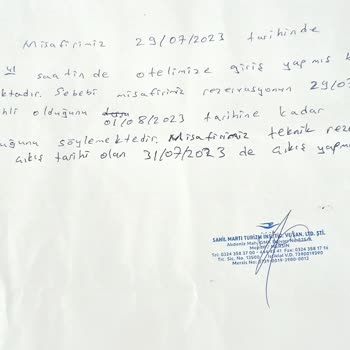 Misafirimiz 29/07/2023 tarihinde
saatinde otelimize giriş yapmış
Sebebi misafirimiz rezervasyonun 29/0
olduğunu 01/08/2023 tarihine kadar
söylemektedir. Misafirimiz teknik
çıkış tarihi olan 31/07/2023 de çıkış yapm
SAHİL MARTI TURİZM İNŞ. TİC. VE SAN. LTD. ŞTİ.
MERSİN
Tel: 0324 358 17 00 Fax: 0324 358 17 16